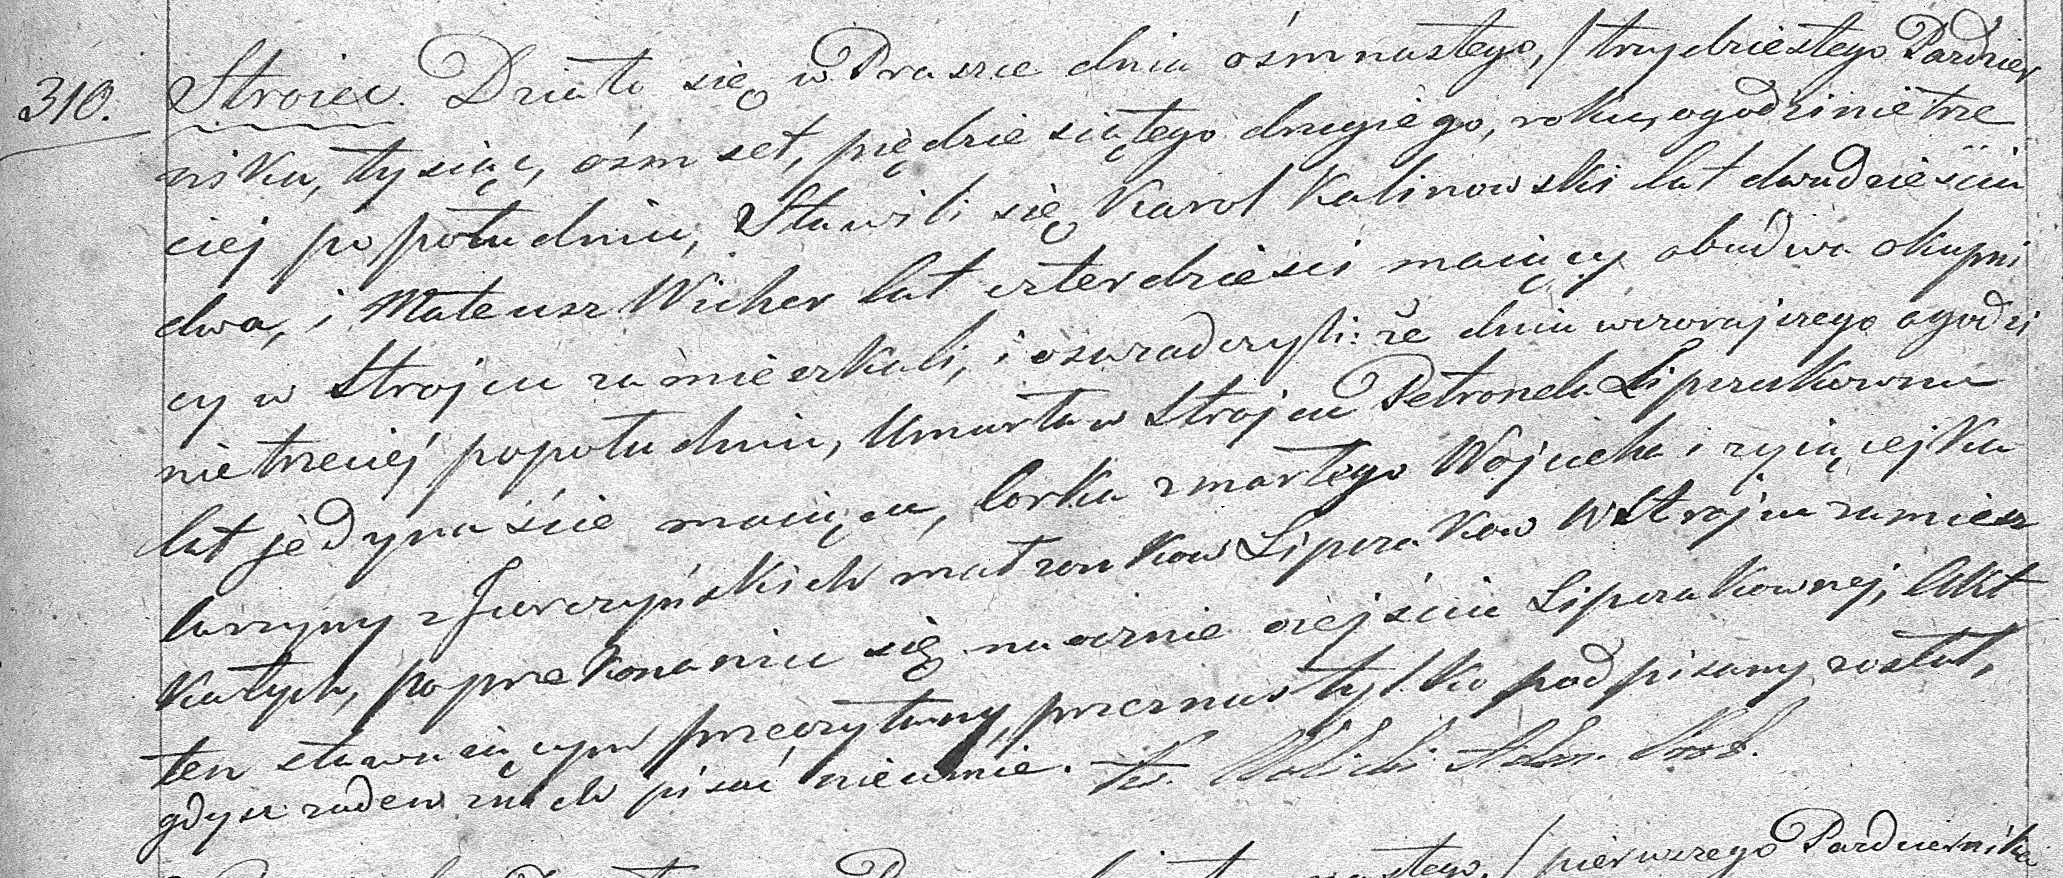 310. Stroiec. Działo się w Praszce dnia ośmnastego, / trzydziestego Paździer
nika, tysiąc, ośm set, piędziesiątego drugiego, roku, o godzinie trze
ciej po południu, Stawili się Karol Kalinowski lat dwadzieścia
dwa, i Mateusz Wicher lat czterdzieści maiący obudwa okupni
cy w Strojcu zamieszkali, i oswiadczyli: że dnia wczorajszego o godzi
nie trzeciej popołudniu, Umarła w Strojcu Petronela Lipczukowna
lat jedynaście maiąca, Corka zmarłego Wojciecha i zyiącej Ka
tarzyny z Jurczyńskich małzonkow Lipczakow w Strojcu zamiesz
kałych, po przekonaniu się naocznie o zejściu Lipczakownej, Akt
ten stawaiącym przeczytany, przeznas tylko podpisany został,
gdysz zaden znich pisać nieumie. Ks.
pierwszego Pazdziernika